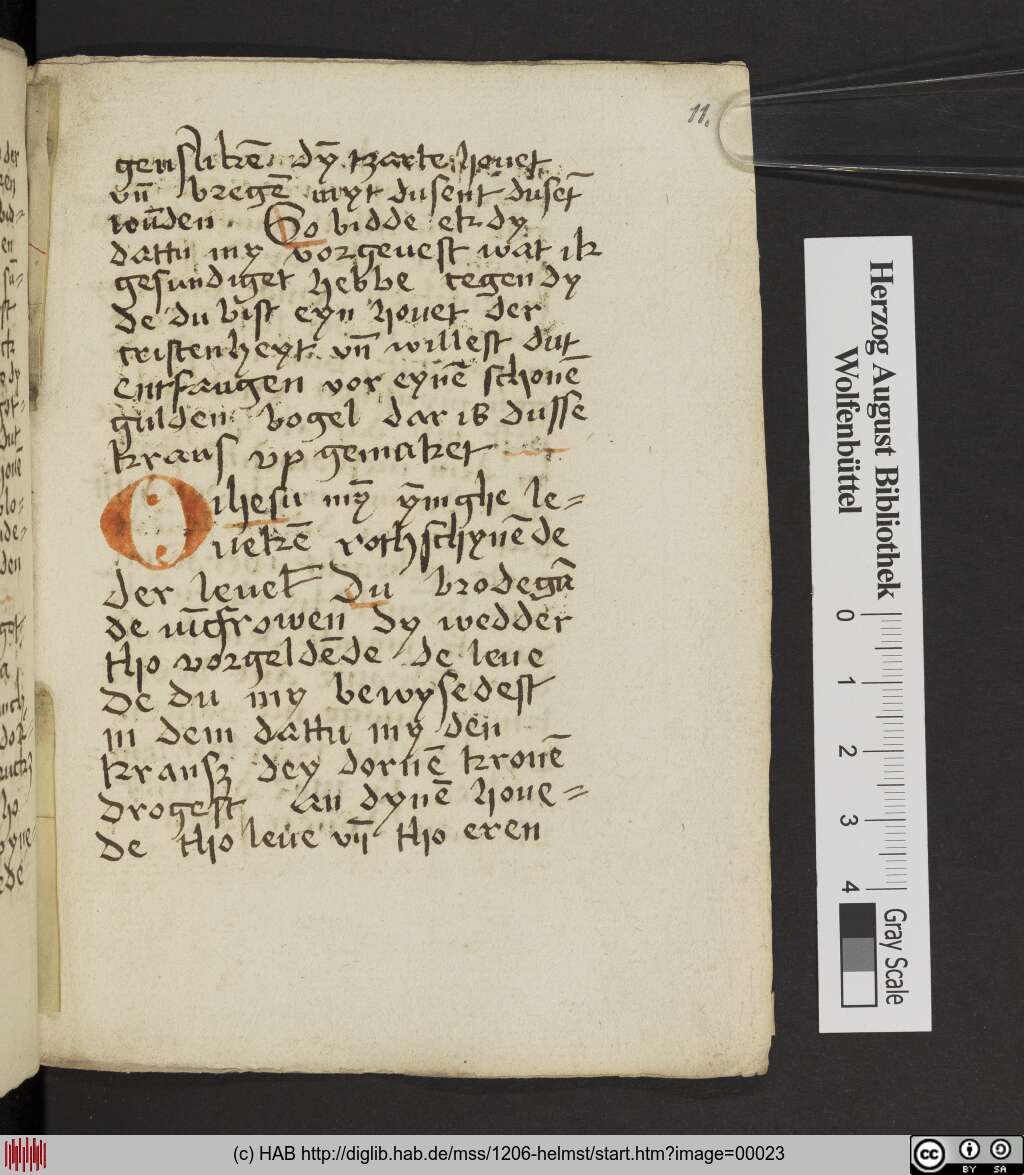 11.
gensliken dȳ tzarte houet
vn̄ bregē myt dusent dusēt
wūden · So bidde ek dy
dattu my vorgeuest wat ik
gesundiget hebbe tegen dy
de du bist eyn houet der
cristenheyt vn̄ willest dut
entfangen vor eynē schonē
gulden vogel dar is dusse
krans vp gemaket
O ihesu mȳ ȳnighe le=
uekē rothschynēde
der leuek Du brodegā
de iūcfrowen dy wedder
tho vorgeldēde de leue
de du my bewysedest
in dem dattu my den
kransz dey dornē kronē
drogest an dynē houe=
de tho leue vn̄ tho eren
Herzog August Bibliothek
Wolfenbüttel
0 1 2 3 4
Gray Scale
(c) HAB http://diglib.hab.de/mss/1206-helmst/start.htm?image=00023
cc BY SA